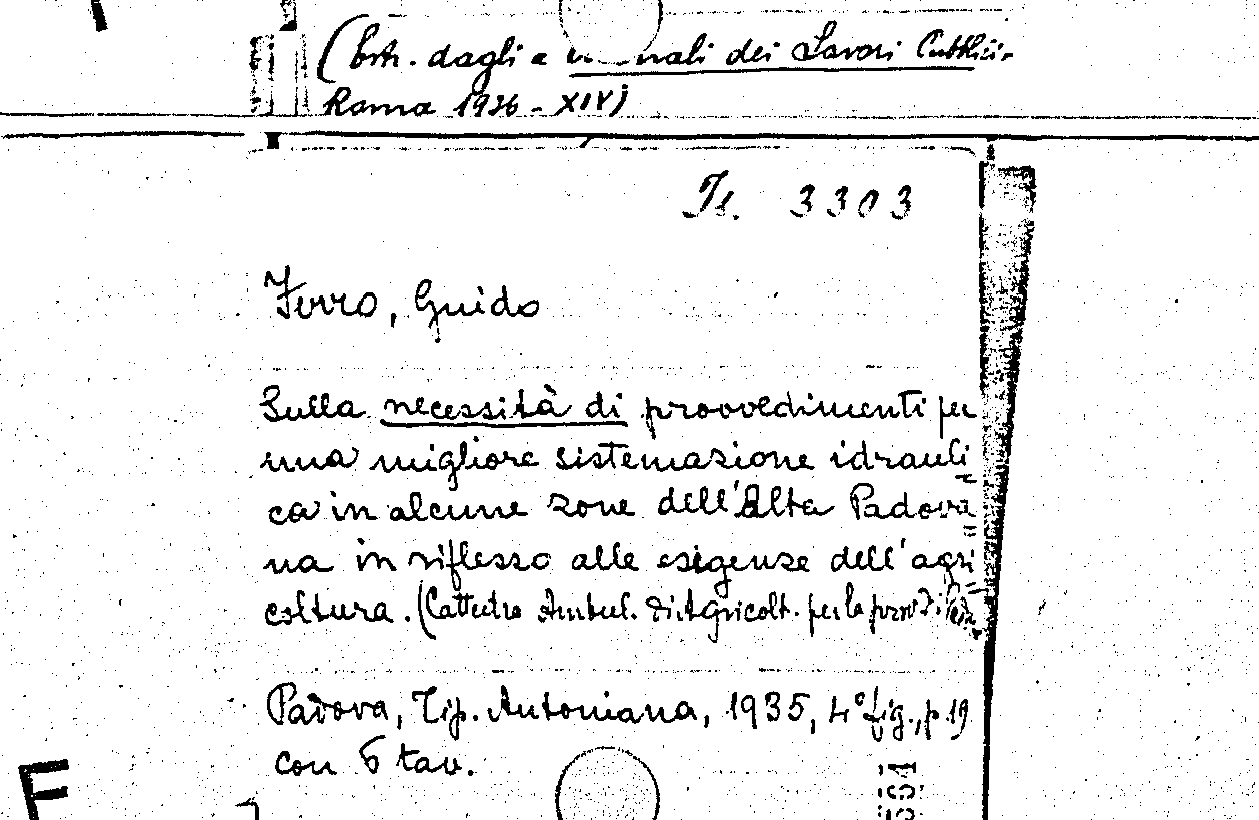 (Estr. dagli annali dei Lavori Pubblici.
Roma 1936 - XIV)
Is. 3303
Ferro, Guido
Sulla necessità di provvedimenti per
una migliore sistemazione idrauli
ca in alcune zone dell'Alta Padova
na in riflesso alle esigenze dell'agri
coltura. (Cattedra Ambul. di Agricolt. per la prov. di
Padova, Tip. Antoniana, 1935, 4° fig., p 19
con 6 tav.
F